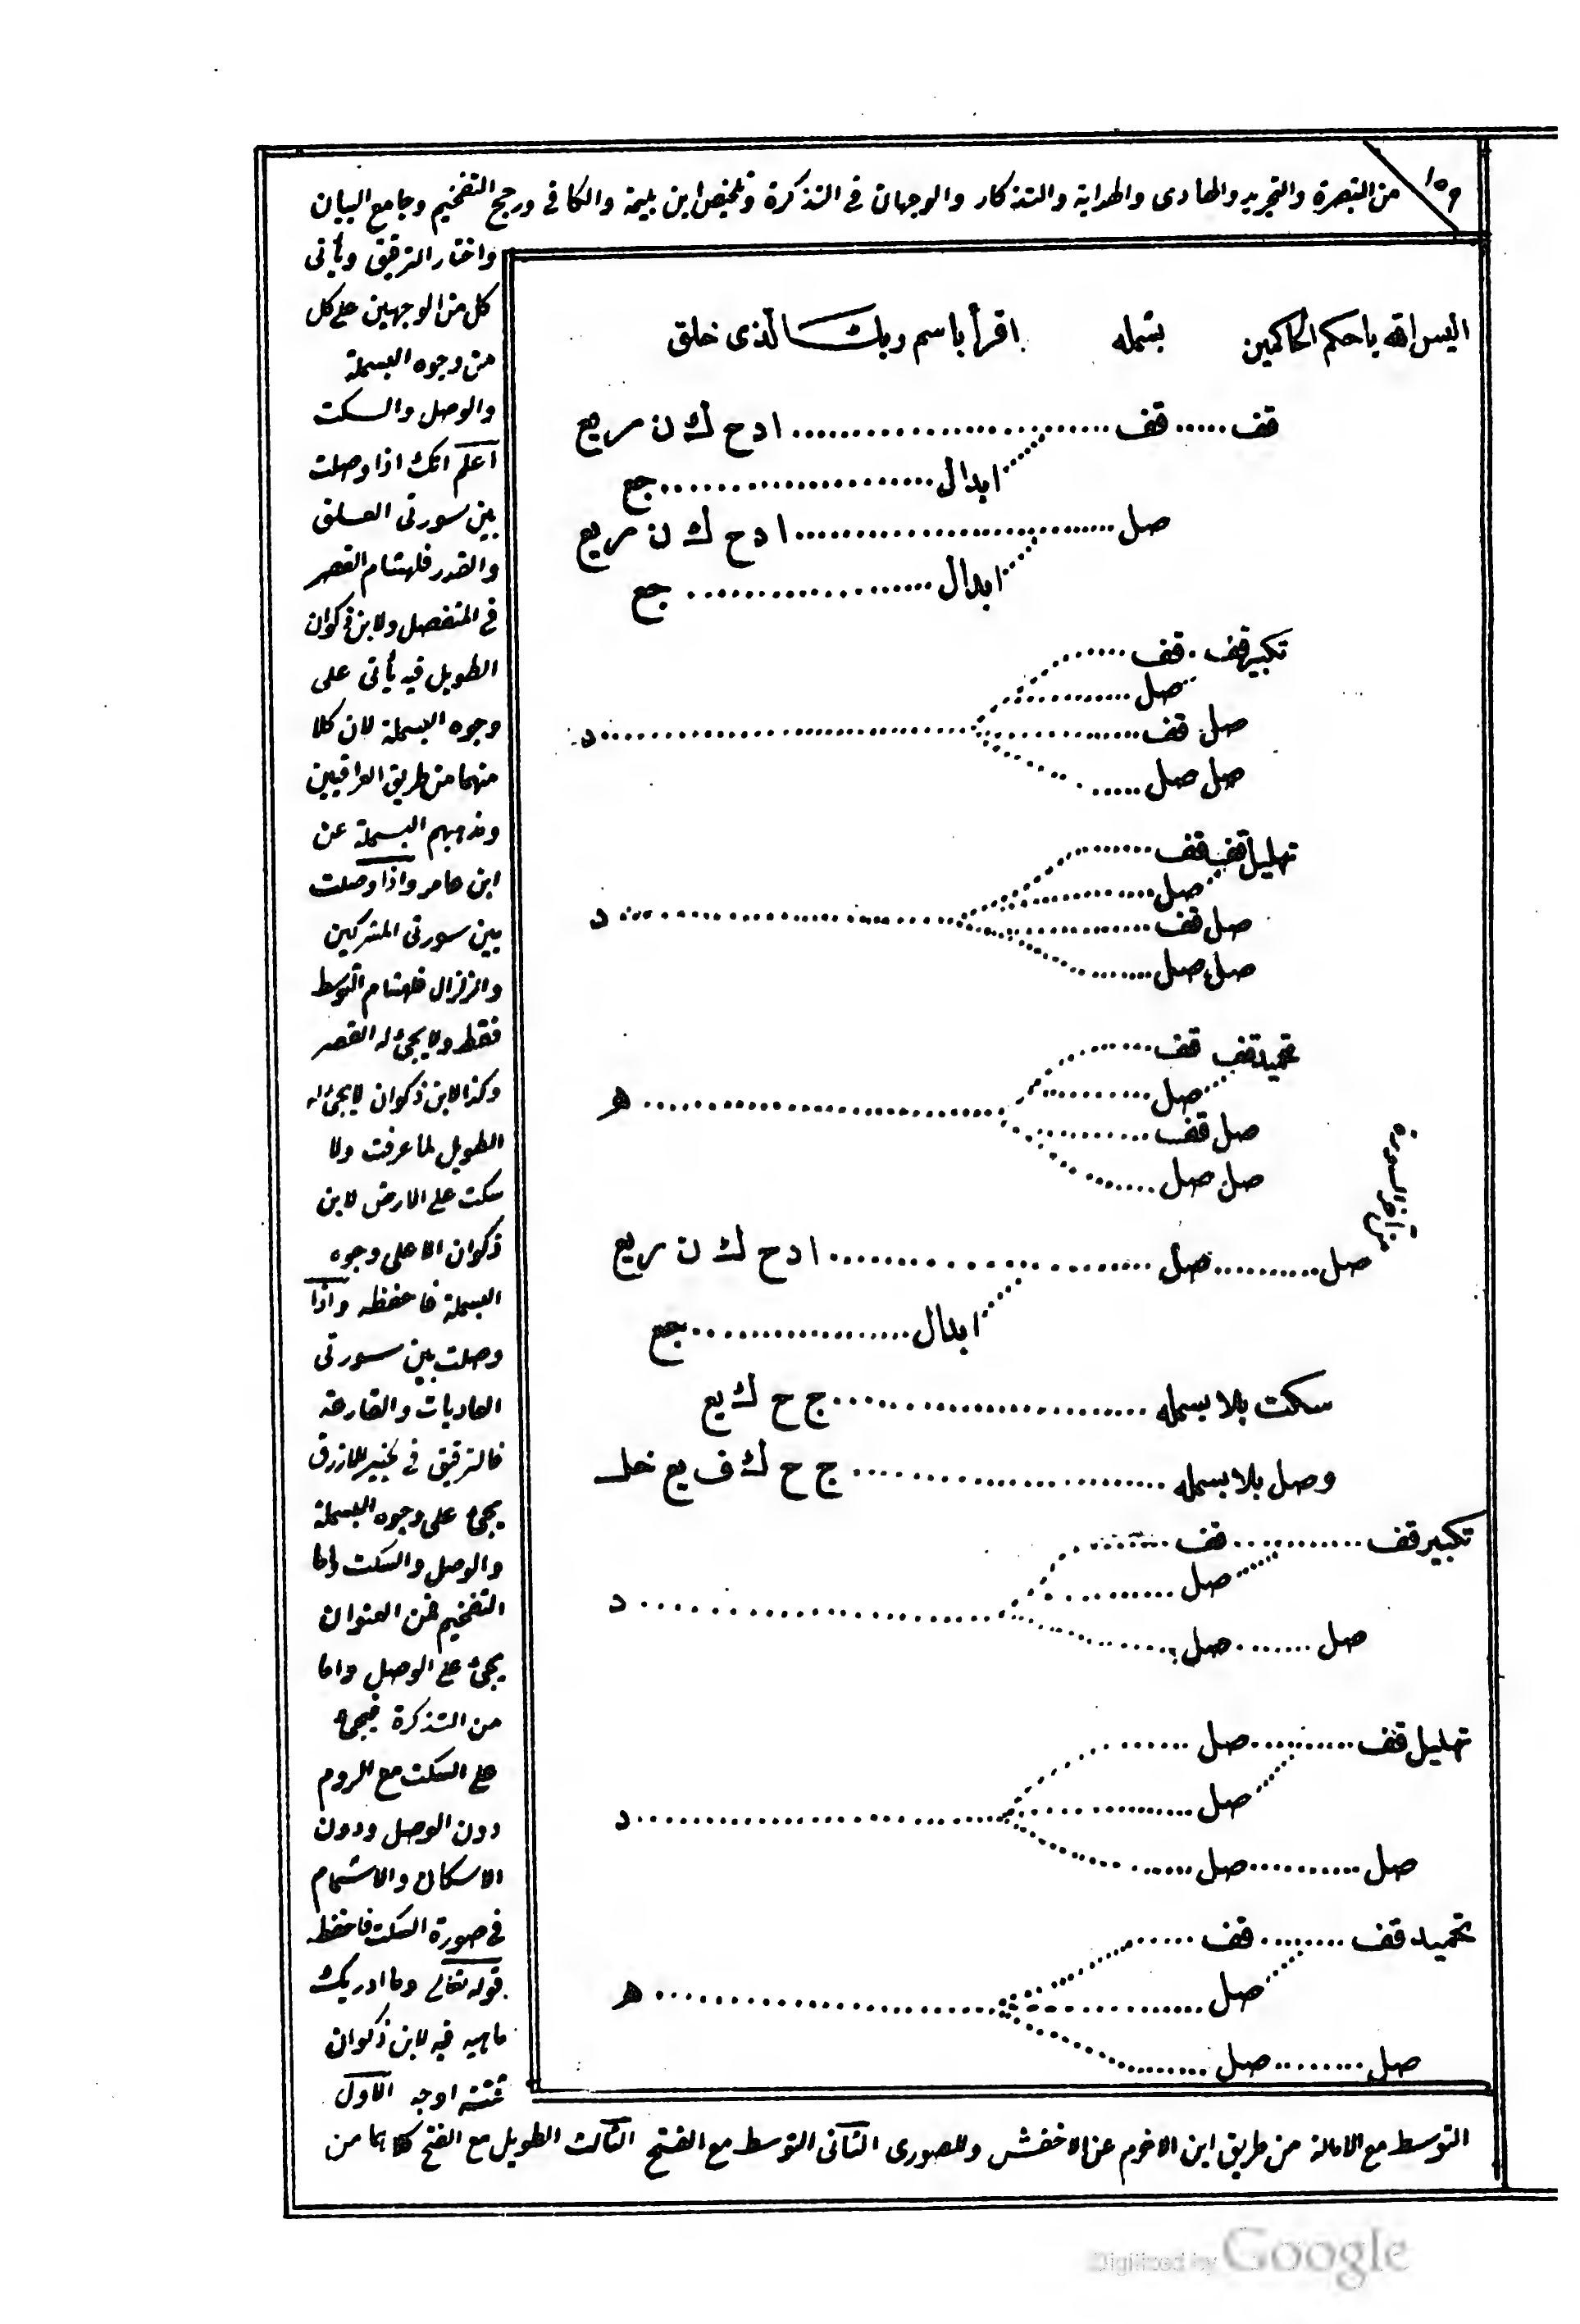 ١٥٩
من التبصرة والتجريد والهادى والهداية والتذكار والوجهان فى التذكرة وتلخيص ابن بليمة والكافى ورجح التفخيم وجامع البيان
واختار الترقيق ويأتى
كل من الوجهين على كل
من وجوه البسملة
والوصل والسكت
اعلم انك اذا وصلت
بين سورتى العلق
والقدر فلهشام القصر
فى المنفصل ولابن ذكوان
الطويل فيه يأتى على
وجوه البسملة لان كلا
منهما من طريق العراقيين
ومذهبهم البسملة عن
ابن عامر واذا وصلت
بين سورتى المشركين
والزلزال فلهشام التوسط
فقط ولا يجئ له القصر
وكذا لابن ذكوان لا يجئ له
الطويل لما عرفت ولا
سكت على الارض لابن
ذكوان الا على وجوه
البسملة فاحفظه واذا
وصلت بين سورتى
العاديات والقارعة
فالترقيق فى لخبير للازرق
يجئ على وجوه البسملة
والوصل والسكت واما
التفخيم فمن العنوان
يجئ على الوصل واما
من التذكرة فيجئ
على السكت مع الروم
دون الوصل ودون
الاسكان والاشمام
فى صورة السكت فاحفظه
قوله تعالى وما ادريك
ماهيه فيه لابن ذكوان
ثلثة اوجه الاول
التوسط مع الامالة من طريق ابن الاخرم عن الاخفش وللصورى الثانى التوسط مع الفتح الثالث الطويل مع الفتح كلاهما من
اليس الله باحكم الحاكمين بسمله اقرأ باسم ربك الذى خلق
قف ...... قف .......... ا د ح ك ن م ر يع
ابدال .......... جع
صل .......... ا د ح ك ن م ر يع
ابدال .......... جع
تكبير قف . قف ......
صل ..........
صل قف .......... د
صل صل ......
تهليل قف قف ......
صل .......... د
صل قف ..........
صل صل ......
تحميد قف قف ......
صل .......... ه
صل قف ..........
صل صل ......
من اخر السورة
صل .......... صل .......... ا د ح ك ن م ر يع
ابدال .......... جع
سكت بلا بسمله .......... ج ح ك يع
وصل بلا بسمله .......... ج ح ك ف يع خلـ
تكبير قف .......... قف ......
صل .......... د
صل ...... صل ......
تهليل قف .......... صل ......
صل .......... د
صل .......... صل ......
تحميد قف ........ قف ......
صل .......... ه
صل ........ صل ........
Digitized by Google